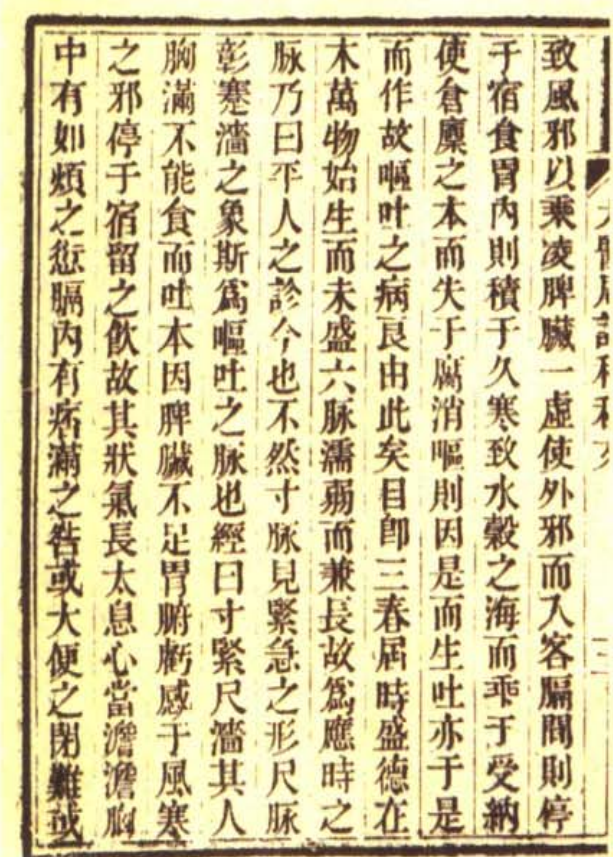 致風邪以乘凌脾臟一虛使外邪而入客膈間則停
于宿食胃內則積于久寒致水穀之海而乖于受納
使倉廩之本而失于腐消嘔則因是而生吐亦于是
而作故嘔吐之病良由此矣目即三春屆時盛德在
木萬物始生而未盛六脉濡弱而兼長故爲應時之
脉乃曰平人之診今也不然寸脉見緊急之形尺脉
彰蹇濇之象斯爲嘔吐之脉也經曰寸緊尺濇其人
胸滿不能食而吐本因脾臟不足胃腑虧感于風寒
之邪停于宿留之飲故其狀氣長太息心當澹澹胸
中有如煩之愆膈內有痞滿之咎或大便之閉難或